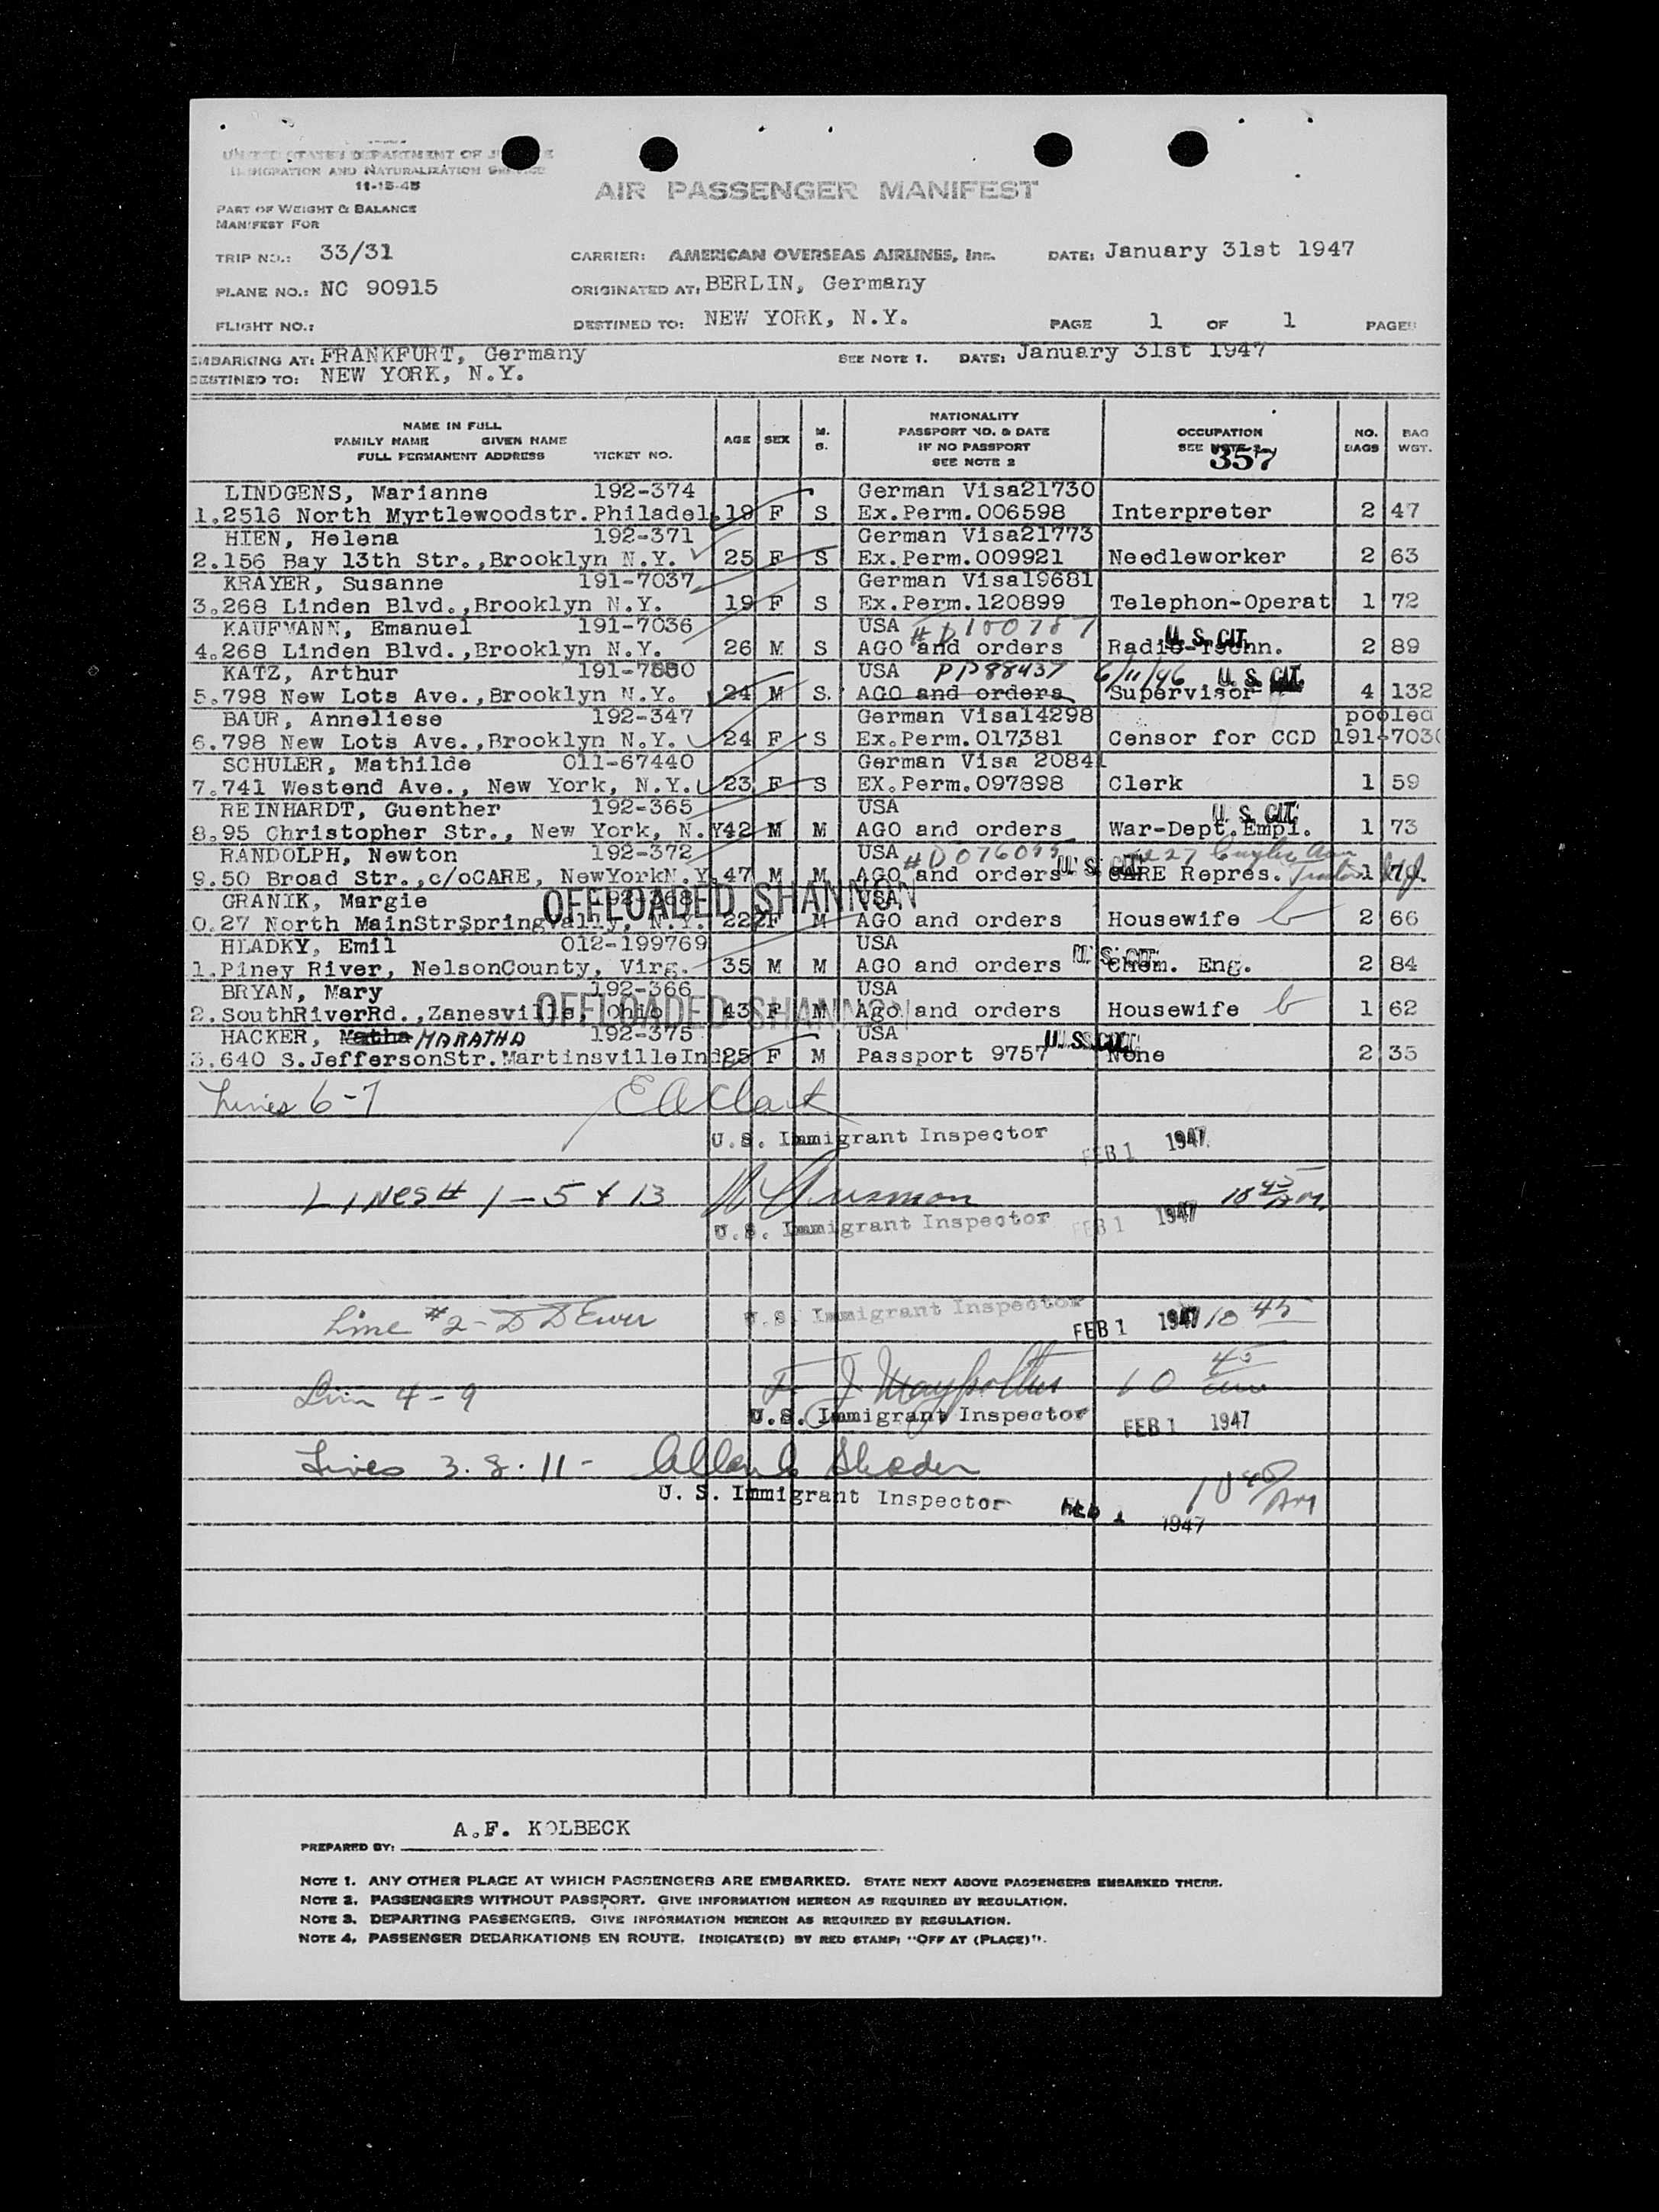 UNITED STATES DEPARTMENT OF
IMMIGRATION AND NATURALIZATION SERVICE
11-15-45
AIR PASSENGER MANIFEST
PART OF WEIGHT & BALANCE
MANIFEST FOR
TRIP NO.: 33/31 CARRIER: AMERICAN OVERSEAS AIRLINES, Inc. DATE: January 31st 1947
PLANE NO.: NC 90915 ORIGINATED AT: BERLIN, Germany
FLIGHT NO.: DESTINED TO: NEW YORK, N.Y. PAGE 1 OF 1 PAGES
EMBARKING AT: FRANKFURT, Germany SEE NOTE 1. DATE: January 31st 1947
DESTINED TO: NEW YORK, N.Y.
NAME IN FULL
FAMILY NAME GIVEN NAME
FULL PERMANENT ADDRESS TICKET NO. AGE SEX M. S. NATIONALITY PASSPORT NO. & DATE IF NO PASSPORT SEE NOTE 2 OCCUPATION SEE NOTE 357 NO. BAGS BAG WGT.
LINDGENS, Marianne 192-374 German Visa21730
1.2516 North Myrtlewoodstr.Philadel. 19 F S Ex.Perm.006598 Interpreter 2 47
HIEN, Helena 192-371 German Visa21773
2.156 Bay 13th Str.,Brooklyn N.Y. 25 F S Ex.Perm.009921 Needleworker 2 63
KRAYER, Susanne 191-7037 German Visa19681
3.268 Linden Blvd.,Brooklyn N.Y. 19 F S Ex.Perm.120899 Telephon-Operat 1 72
KAUFMANN, Emanuel 191-7036 USA #D100787
4.268 Linden Blvd.,Brooklyn N.Y. 26 M S AGO and orders Radio-Techn. U. S. CIT. 2 89
KATZ, Arthur USA PP88437 6/11/46 U. S. CIT.
5.798 New Lots Ave.,Brooklyn N.Y. 24 M S. AGO and orders Supervisor 4 132
BAUR, Anneliese 192-347 German Visa14298 pooled
6.798 New Lots Ave.,Brooklyn N.Y. 24 F S Ex.Perm.017381 Censor for CCD 191-703
SCHULER, Mathilde 011-67440 German Visa 20841
7.741 Westend Ave., New York, N.Y. 23 F S EX.Perm.097898 Clerk 1 59
REINHARDT, Guenther 192-365 USA U. S. CIT.
8.95 Christopher Str., New York, N.Y 42 M M AGO and orders War-Dept.Empl. 1 73
RANDOLPH, Newton 192-372 USA
9.50 Broad Str.,c/oCARE, NewYorkN.Y. 47 M M AGO and orders U. S. CIT. CARE Repres. 1
GRANIK, Margie USA OFFLOADED SHANNON
0.27 North MainStrSpringVally, N.Y. 22 F M AGO and orders Housewife 2 66
HLADKY, Emil 012-199769 USA
1.Piney River, NelsonCounty, Virg. 35 M M AGO and orders U. S. CIT. Chem. Eng. 2 84
BRYAN, Mary 192-366 USA
2.SouthRiverRd.,Zanesville, Ohio 43 F M Ago and orders Housewife 1 62
OFFLOADED SHANNON
HACKER, Matha MARATHA 192-375 USA
3.640 S.JeffersonStr.MartinsvilleInd 25 F M Passport 9757 U. S. CIT. None 2 35
Lines 6-7 E A Clark
U.S. Immigrant Inspector FEB 1 1947
LINES # 1-5 & 13 10 45 AM.
U.S. Immigrant Inspector FEB 1 1947
Line #2 - U.S. Immigrant Inspector FEB 1 1947 10 45
4-9 10 45
U.S. Immigrant Inspector FEB 1 1947
Lines 3. 8. 11 - 10 45 AM
U. S. Immigrant Inspector FEB 1 1947
A.F. KOLBECK
PREPARED BY:
NOTE 1. ANY OTHER PLACE AT WHICH PASSENGERS ARE EMBARKED. STATE NEXT ABOVE PASSENGERS EMBARKED THERE.
NOTE 2. PASSENGERS WITHOUT PASSPORT. GIVE INFORMATION HEREON AS REQUIRED BY REGULATION.
NOTE 3. DEPARTING PASSENGERS. GIVE INFORMATION HEREON AS REQUIRED BY REGULATION.
NOTE 4. PASSENGER DEBARKATIONS EN ROUTE. INDICATE(D) BY RED STAMP: "OFF AT (PLACE)".